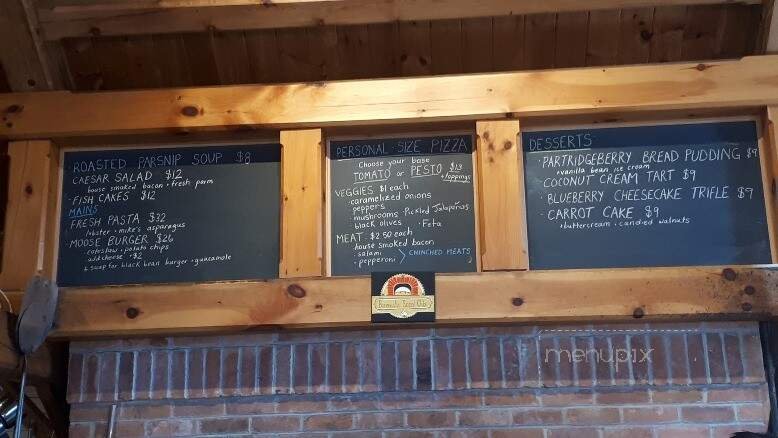 ROASTED PARSNIP SOUP $8
CAESAR SALAD $12
house smoked bacon • fresh parm
• FISH CAKES $12
MAINS
FRESH PASTA $32
lobster • mike's asparagus
• MOOSE BURGER $26
coleslaw • potato chips
add cheese • $2
swap for black bean burger + guacamole
PERSONAL-SIZE PIZZA
Choose your base
TOMATO or PESTO $19
+ toppings
VEGGIES $1 each
• caramelized onions
peppers
• mushrooms Pickled Jalapeños
black olives • Feta
MEAT $2.50 each
house smoked bacon
• salami
• pepperoni > CHINCHED MEATS
DESSERTS
• PARTRIDGEBERRY BREAD PUDDING $9
• vanilla bean ice cream
COCONUT CREAM TART $9
• BLUEBERRY CHEESECAKE TRIFLE $9
• CARROT CAKE $9
• buttercream • candied walnuts
menupix